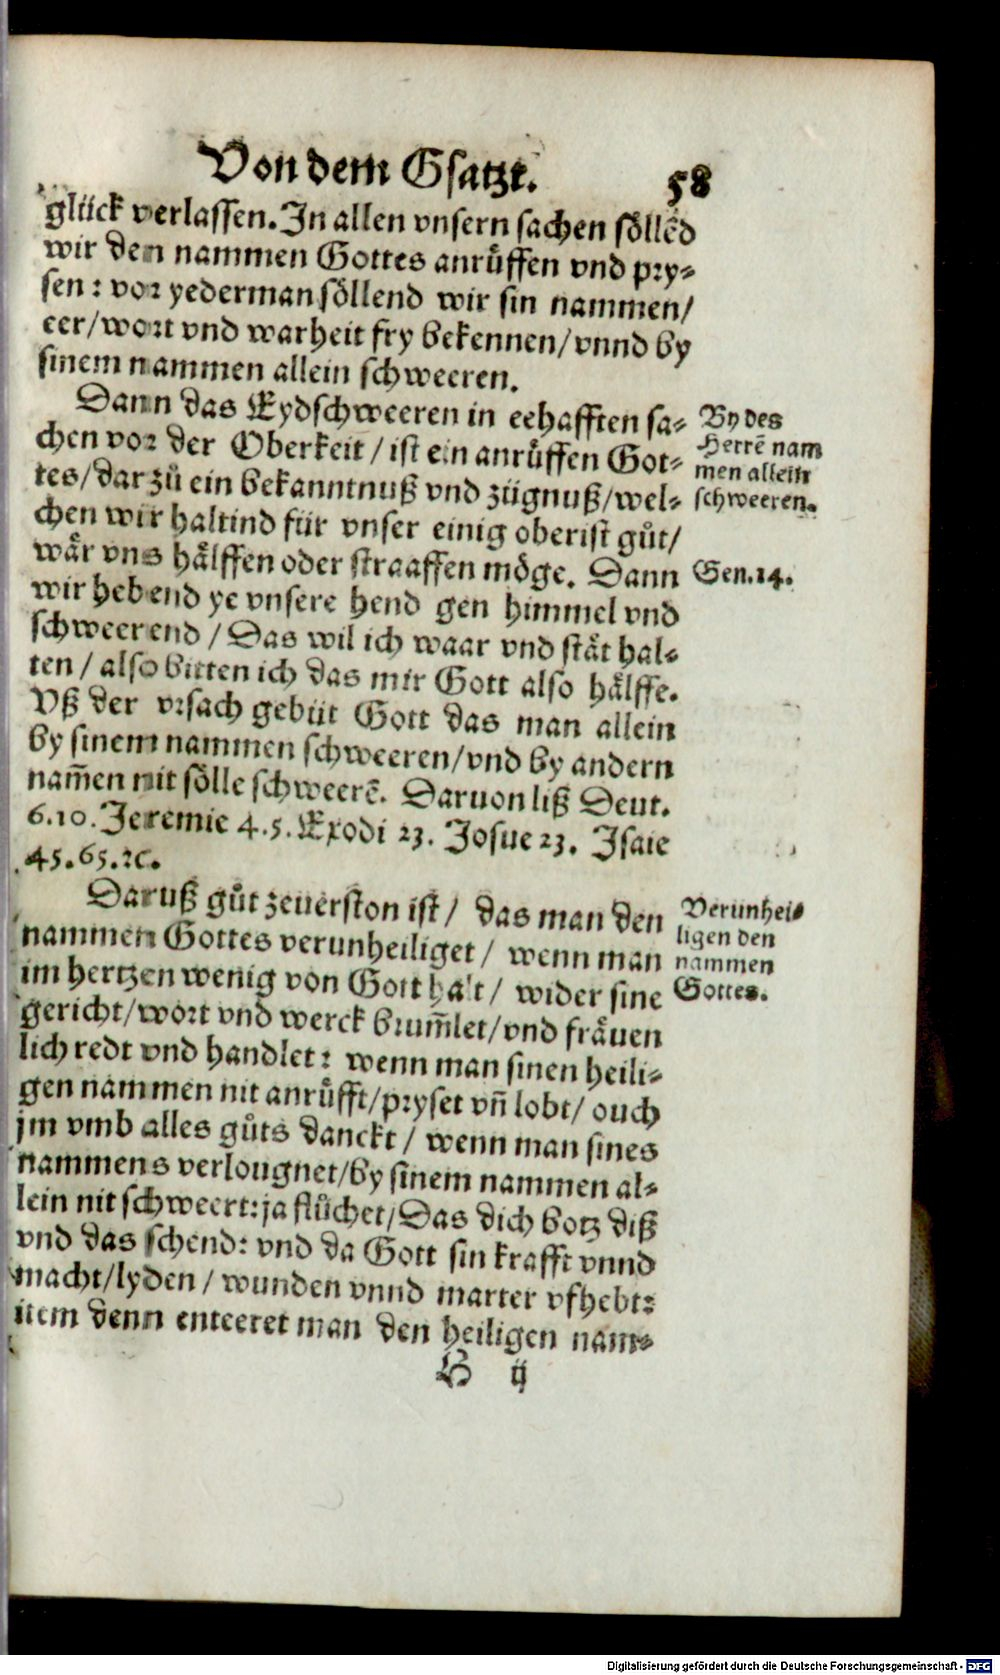 Von dem Gsatzt. 58
glück verlassen. In allen vnsern sachen söllẽd
wir den nammen Gottes anrůffen vnd pry-
sen: vor yederman söllend wir sin nammen/
eer/wort vnd warheit fry bekennen/vnnd by
sinem nammen allein schweeren.
Dann das Eydschweeren in eehafften sa-
chen vor der Oberkeit/ist ein anrůffen Got-
tes/darzů ein bekanntnuß vnd zügnuß/wel-
chen wir haltind für vnser einig oberist gůt/
wår vns hålffen oder straaffen möge. Dann
wir hebend ye vnsere hend gen himmel vnd
schweerend/Das wil ich waar vnd ståt hal-
ten/also bitten ich das mir Gott also hålffe.
Vß der vrsach gebüt Gott das man allein
by sinem nammen schweeren/vnd by andern
nam̃en nit sölle schweerẽ. Daruon liß Deut.
6.10. Jeremie 4.5. Exodi 23. Josue 23. Isaie
45.65.ꝛc.
By des
Herrẽ nam
men allein
schweeren.
Gen.14.
Daruß gůt zeuerston ist/ das man den
nammen Gottes verunheiliget/ wenn man
im hertzen wenig von Gott halt/ wider sine
gericht/wort vnd werck brum̃let/vnd fråuen
lich redt vnd handlet: wenn man sinen heili-
gen nammen nit anrůfft/pryset vñ lobt/ ouch
jm vmb alles gůts danckt/ wenn man sines
nammens verlougnet/by sinem nammen al-
lein nit schweert: ja flůchet/Das dich botz diß
vnd das schend: vnd da Gott sin krafft vnnd
macht/lyden/wunden vnnd marter vfhebt:
item denn enteeret man den heiligen nam-
Verunhei-
ligen den
nammen
Gottes.
H ij
Digitalisierung gefördert durch die Deutsche Forschungsgemeinschaft - DFG